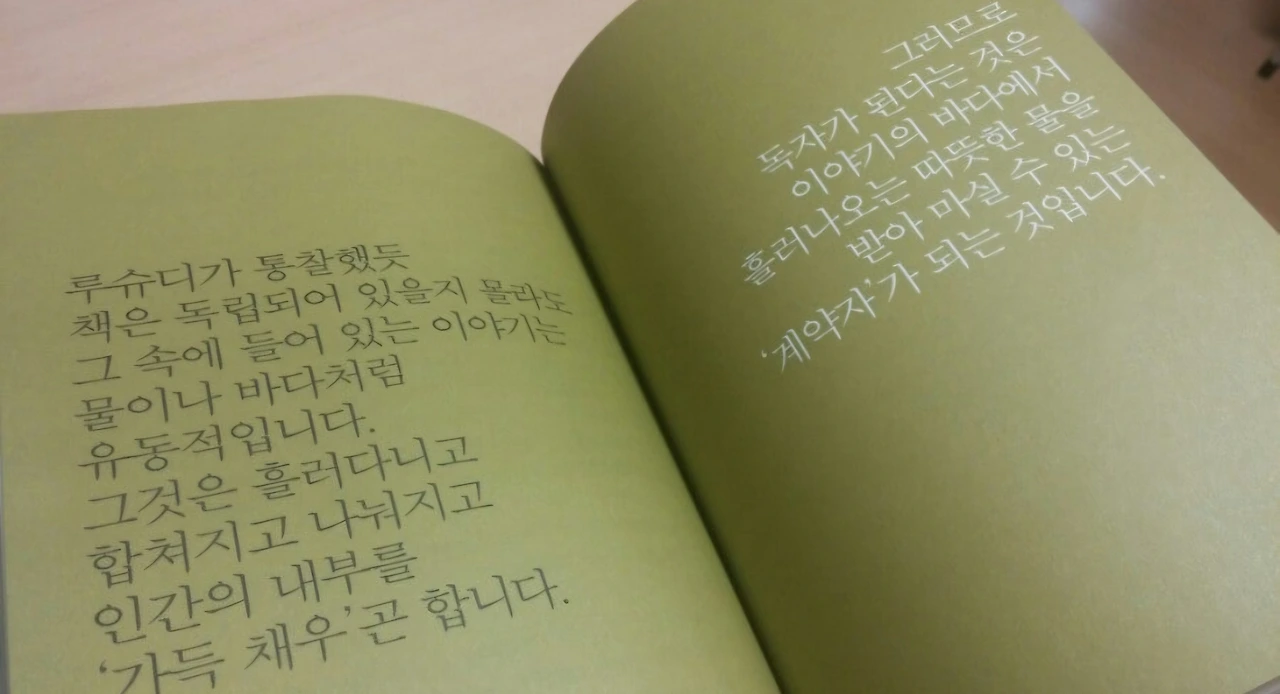 루슈디가 통찰했듯
책은 독립되어 있을지 몰라도
그 속에 들어 있는 이야기는
물이나 바다처럼
유동적입니다.
그것은 흘러다니고
합쳐지고 나눠지고
인간의 내부를
‘가득 채우’곤 합니다.
그러므로
독자가 된다는 것은
이야기의 바다에서
흘러나오는 따뜻한 물을
받아 마실 수 있는
‘계약자’가 되는 것입니다.